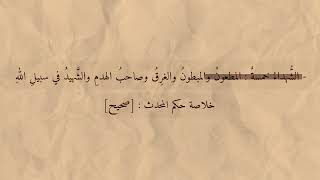 الشُّهداءُ خمسةٌ : المطعونُ والمبطونُ والغرِقُ وصاحبُ الهدمِ والشَّهيدُ في سبيلِ اللهِ
خلاصة حكم المحدث : [صحيح]